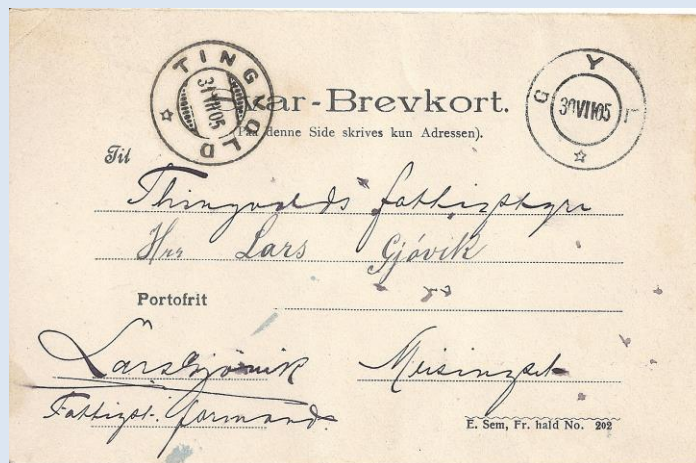 TINGVOLD
31 VII 05
GYL
30 VII 05
Svar-Brevkort.
(Paa denne Side skrives kun Adressen).
Til
Thingvolds fattigstyre
Hrr Lars Gjövik
Portofrit
Lars Gjövik Meisingset
Fattigst. formand.
E. Sem, Fr. hald No. 202